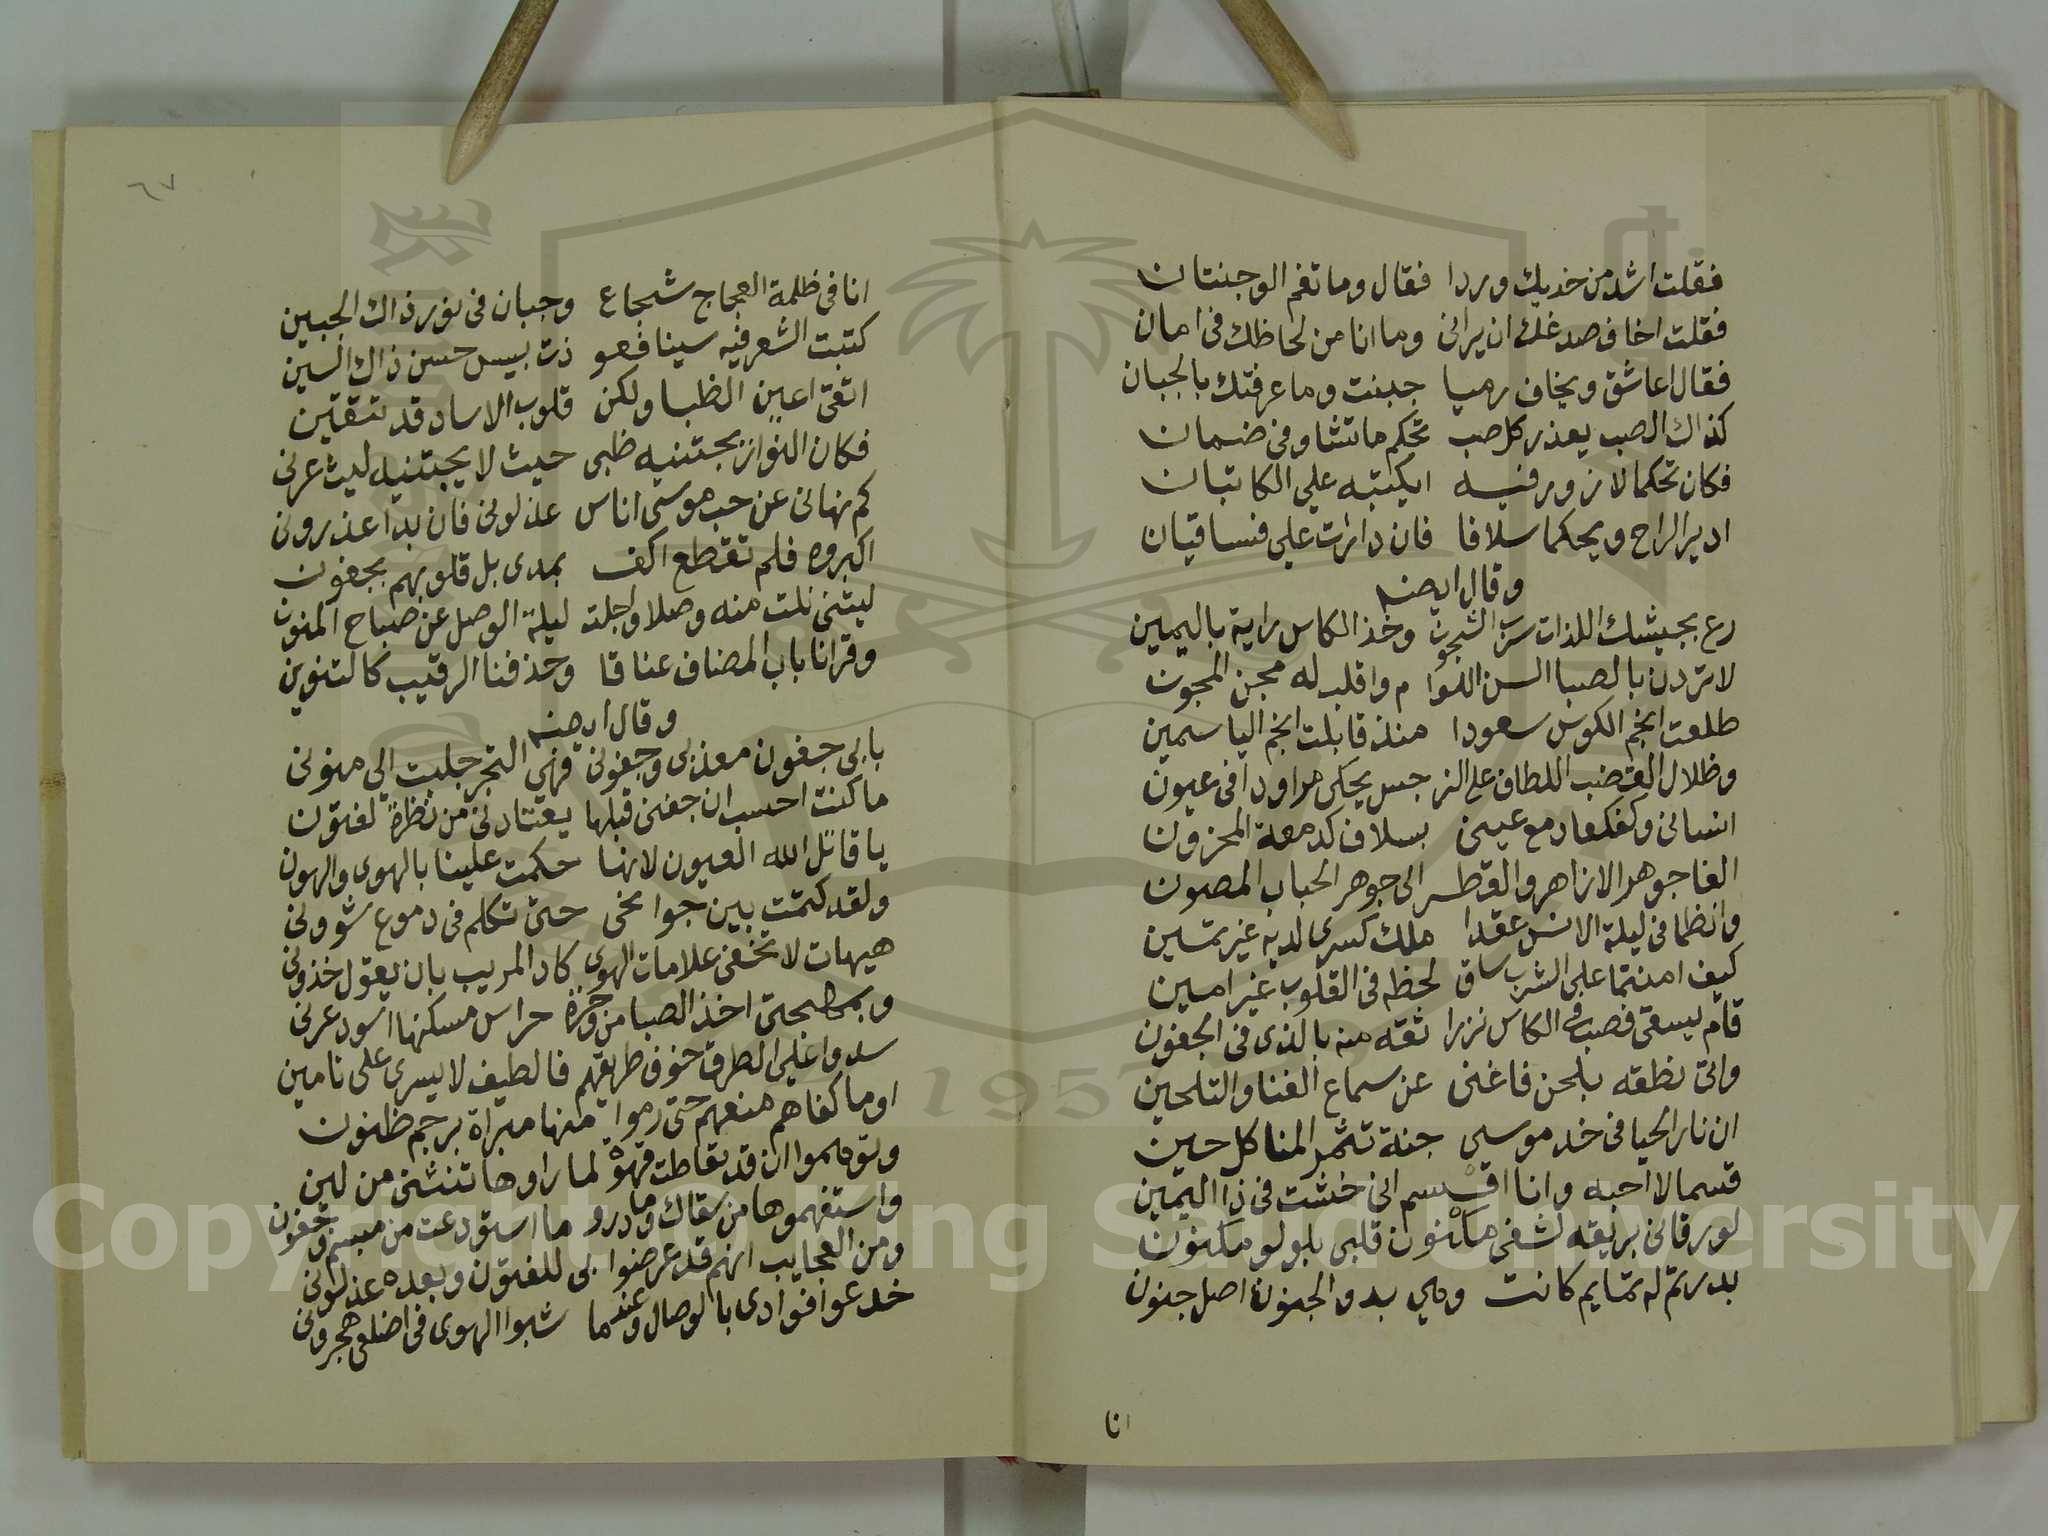 فقلت اشد من خديك وردا فقال وما تغم الوجنتان
فقلت اخاف صدغك ان يرانى وما انا من لحاظك فى امان
فقال اعاشق ويخاف رميا جبنت وما عرفتك بالجبان
كذاك الصب يعذر كل صب تحكم ما تشا وفى ضمان
فكان تحكما لا زور فيه ايكتبه على الكاتبان
اديرا الراح ويحكما سلافا فان دارت على فساقيان
وقال ايضه
رع بجيش اللذات سرب الشجون وخذ الكاس راية باليمين
لا تردن بالصبا السن اللوا م واقلب له مجن المجون
طلعت انجم الكوس سعودا منذ قابلت انجم الياسمين
وظلال القضب اللطاف على النرجس يحكى مراودا فى عيون
انسانى وكفكفا دمع عينى بسلاف كدمعة المحزون
الفا جوهر الازاهر والقطر الى جوهر الحباب المصون
وانظما فى ليلة الانس عقدا ملك كسرى لديه غير ثمين
كيف امنتما على الشرب ساق لحظه فى القلوب غير امين
قام يسقى فصب فى الكاس نزرا ثقه منه بالذى فى الجفون
واتى نطقه بلحن فاغنى عن سماع الغنا والتلحين
ان نار الحيا فى خد موسى جنة تثمر المنا كل حين
قسما لا احبه وانا اقسم انى خنثت فى ذا اليمين
لو رقانى بريقه لشفى مكنون قلبى بلولو مكنون
بدر تم له تمايم كانت وهى بدو الجنون اصل جنون
انا
٦٧
انا فى ظلمة العجاج شجاع وجبان فى نور ذاك الجبين
كتبت الشعر فيه سينا فعو ذت بيس حسن ذاك السين
اتقى اعين الظبا ولكن قلوب الاساد قد تتقين
فكان النوار يجتنيه ظبى حيث لا يجتنيه ليث عرنى
كم نهانى عن حب موسى اناس عذلونى فان بدا عذرونى
اكبروه فلم تقطع اكف بمدى بل قلوبهم بجفون
ليتنى نلت منه وصلا واجلت ليلة الوصل عن صباح المنون
وقرانا باب المضاف عناقا وحذفنا الرقيب كالتنوين
وقال ايضه
بابى جفون معذبى وجفونى فهى التى جلبت الى منونى
ما كنت احسب ان جفنى قبلها يعتادنى من نظرة لفتون
يا قاتل الله العيون لانها حكمت علينا بالهوى والهون
ولقد كتمت بين جوانحى حتى تكلم فى دموع شوونى
هيهات لا تخفى علامات الهوى كاد المريب بان يقول خذونى
وبمهجتى اخذ الصبا من وجرة حراس مسكنها اسود عرنى
سدوا على الطرق خوف طريقهم فالطيف لا يسرى على تامين
اوما كفاهم منعهم حتى رموا منها مبراة برجم ظنون
وتوهموا ان قد تعاطت قهوة لما راوها تنثنى من لين
واستفهموها من سقاك وما دروا ما استودعت من مبسم وجفون
ومن العجايب انهم قد عرضوا بى للفتون وبعده عذلونى
خدعوا فوادى بالوصال وعندما شبوا الهوى فى اضلعى هجرونى